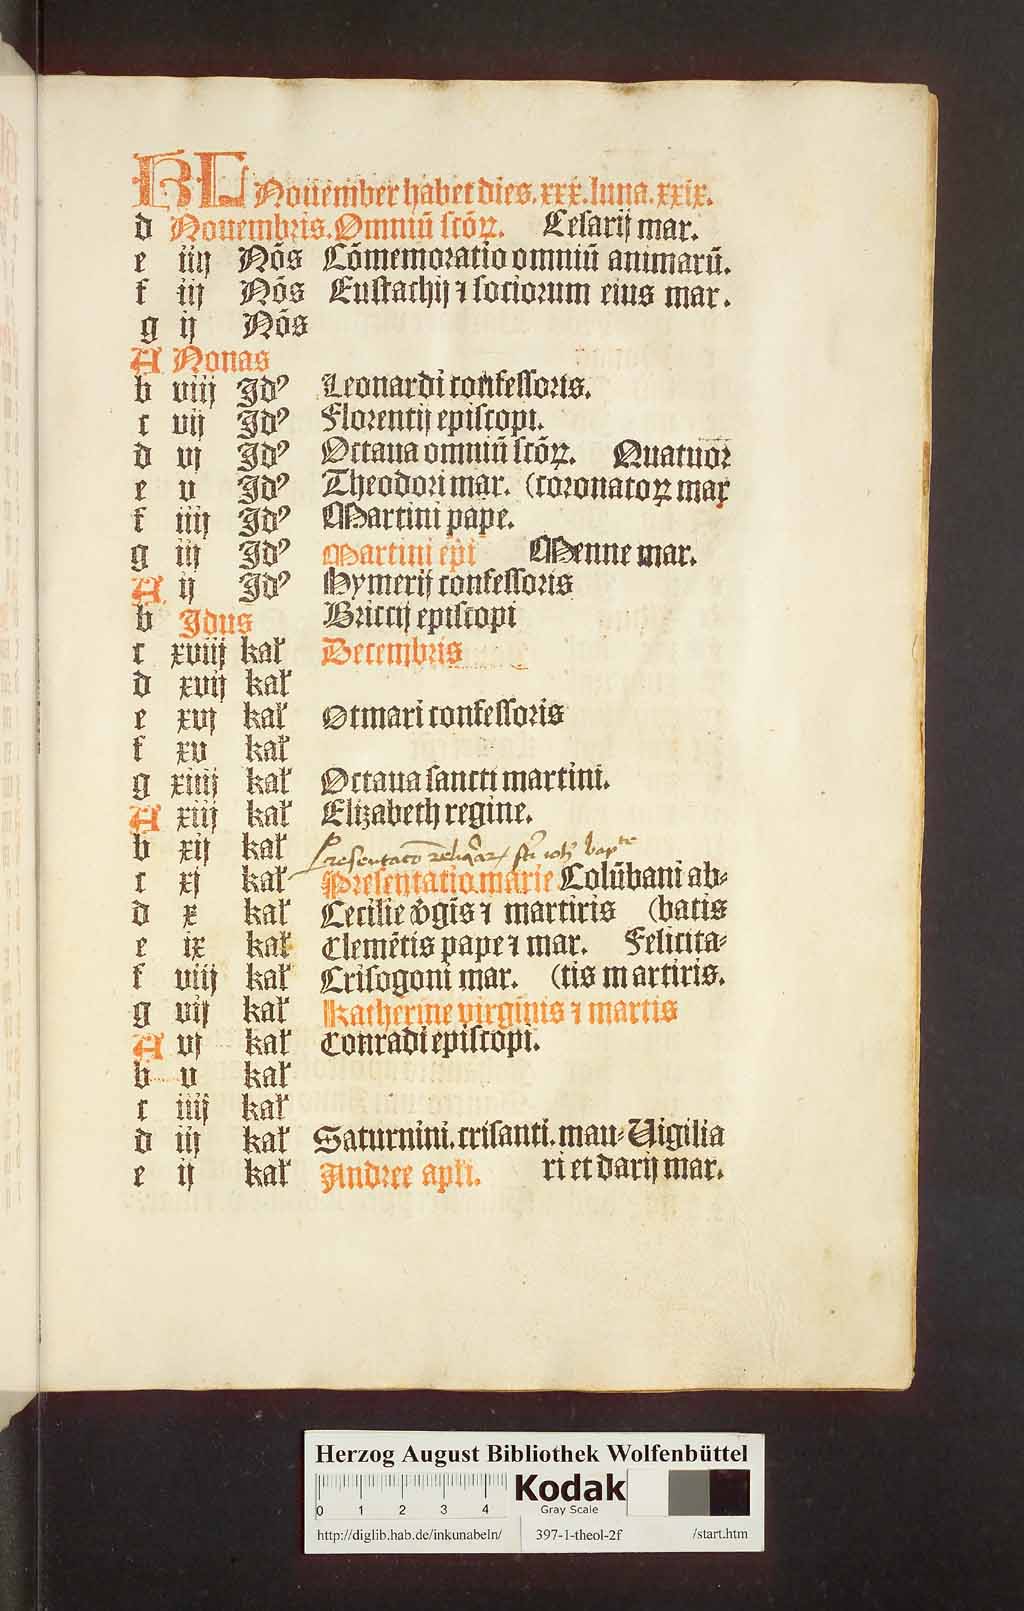 KL Nouember habet dies. xxx. luna. xxix.
d Nouembris. Omniū sctōꝝ. Cesarij mar.
e iiij Nōs Cōmemoratio omniū animarū.
f iij Nōs Eustachij ⁊ sociorum eius mar.
g ij Nōs
A Nonas
b viij Idꝰ Leonardi confessoris.
c vij Idꝰ Florentij episcopi.
d vj Idꝰ Octaua omniū sctōꝝ. Quatuor
e v Idꝰ Theodori mar. (coronatoꝝ maꝝ
f iiij Idꝰ Martini pape.
g iij Idꝰ Martini epi Menne mar.
A ij Idꝰ Hymerij confessoris
b Idus Briccij episcopi
c xviij kal Decembris
d xvij kal
e xvj kal Otmari confessoris
f xv kal
g xiiij kal Octaua sancti martini.
A xiij kal Elizabeth regine.
b xij kal
c xj kal Presentatio marie Colūbani ab⸗
d x kal Cecilie v̓gīs ⁊ martiris (batis
e ix kal Clemētis pape ⁊ mar. Felicita⸗
f viij kal Crisogoni mar. (tis martiris.
g vij kal Katherine virginis ⁊ martis
A vj kal Conradi episcopi.
b v kal
c iiij kal
d iij kal Saturnini. crisanti. mau⸗ Uigilia
e ij kal Andree apli. ri et darij mar.
Herzog August Bibliothek Wolfenbüttel
0 1 2 3 4
Kodak
Gray Scale
http://diglib.hab.de/inkunabeln/ 397-1-theol-2f /start.htm